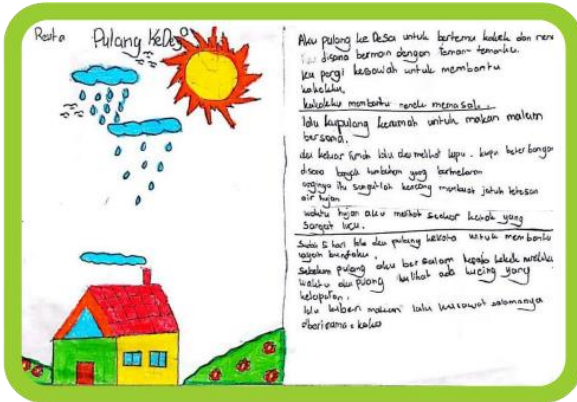 Resta
Pulang KeDesa
Aku pulang ke Desa untuk bertemu kakek dan nene
disana bermain dengan teman-temanku.
ku pergi kesawah untuk membantu
kakekku,
kakakku membantu nenek memasak.
lalu kupulang kerumah untuk makan malam
bersama.
aku keluar rumah lalu aku melihat kupu-kupu beterbangan
disana banyak tumbuhan yang bermekaran
anginya itu sangatlah kencang membuat jatuh tetesan
air hujan
waktu hujan aku melihat seekor katak yang
sangat lucu.
Sudah 5 hari lalu aku pulang kekota untuk membantu
ayah bundaku.
Sebelum pulang aku bersalam kepada kakek nenekku
waktu aku pulang kulihat ada kucing yang
kelaparan.
lalu kuberi makan lalu kurawat selamanya
diberi nama